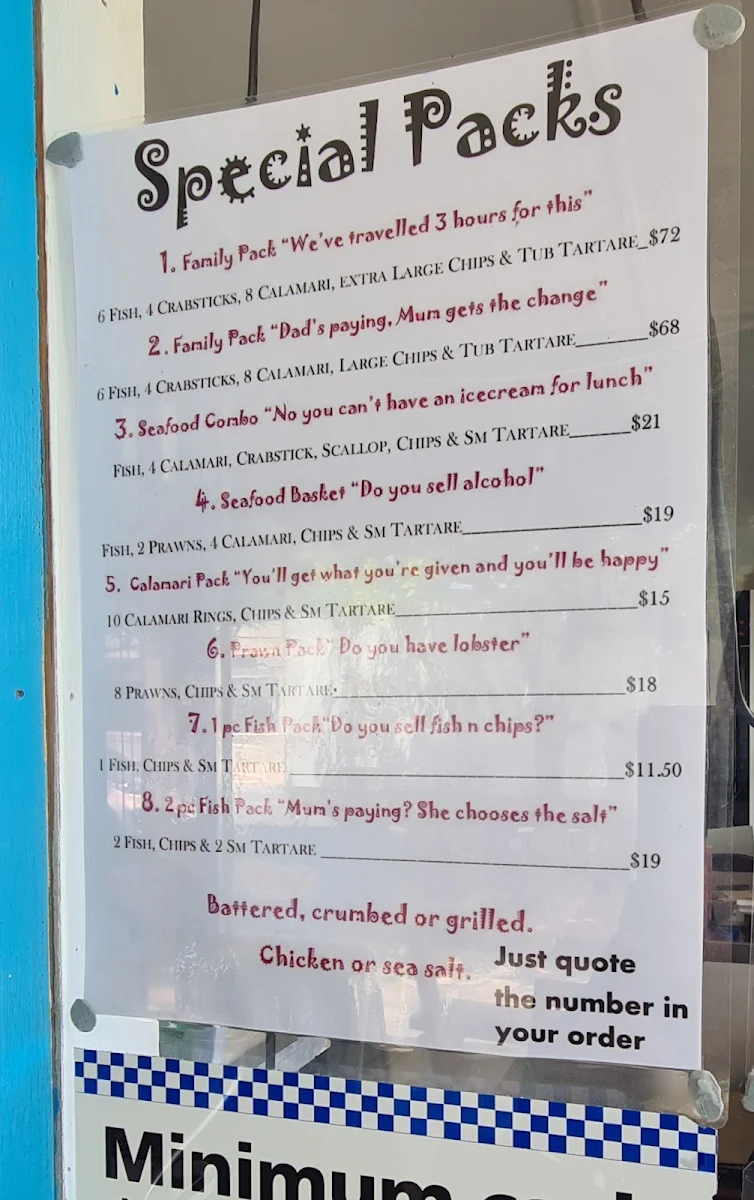 Special Packs
1. Family Pack "We've travelled 3 hours for this"
6 Fish, 4 Crabsticks, 8 Calamari, extra Large Chips & Tub Tartare_$72
2. Family Pack "Dad's paying, Mum gets the change"
6 Fish, 4 Crabsticks, 8 Calamari, Large Chips & Tub Tartare______$68
3. Seafood Combo "No you can't have an icecream for lunch"
Fish, 4 Calamari, Crabstick, Scallop, Chips & Sm Tartare______$21
4. Seafood Basket "Do you sell alcohol"
Fish, 2 Prawns, 4 Calamari, Chips & Sm Tartare______$19
5. Calamari Pack "You'll get what you're given and you'll be happy"
10 Calamari Rings, Chips & Sm Tartare______$15
6. Prawn Pack" Do you have lobster"
8 Prawns, Chips & Sm Tartare.______$18
7. 1 pc Fish Pack"Do you sell fish n chips?"
1 Fish, Chips & Sm Tartare ______$11.50
8. 2pc Fish Pack "Mum's paying? She chooses the salt"
2 Fish, Chips & 2 Sm Tartare ______$19
Battered, crumbed or grilled.
Chicken or sea salt.
Just quote
the number in
your order
Minimum